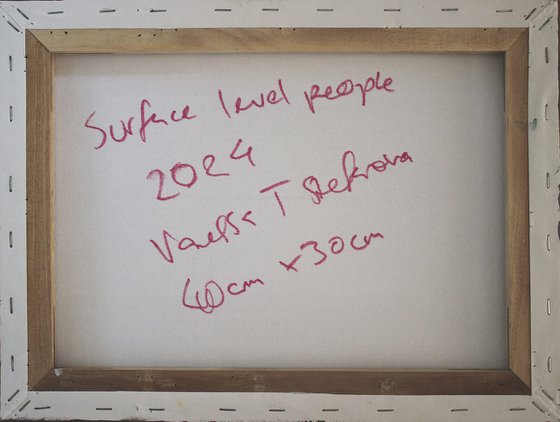 Surface level people
2024
Vanessa T
40cm x 30cm